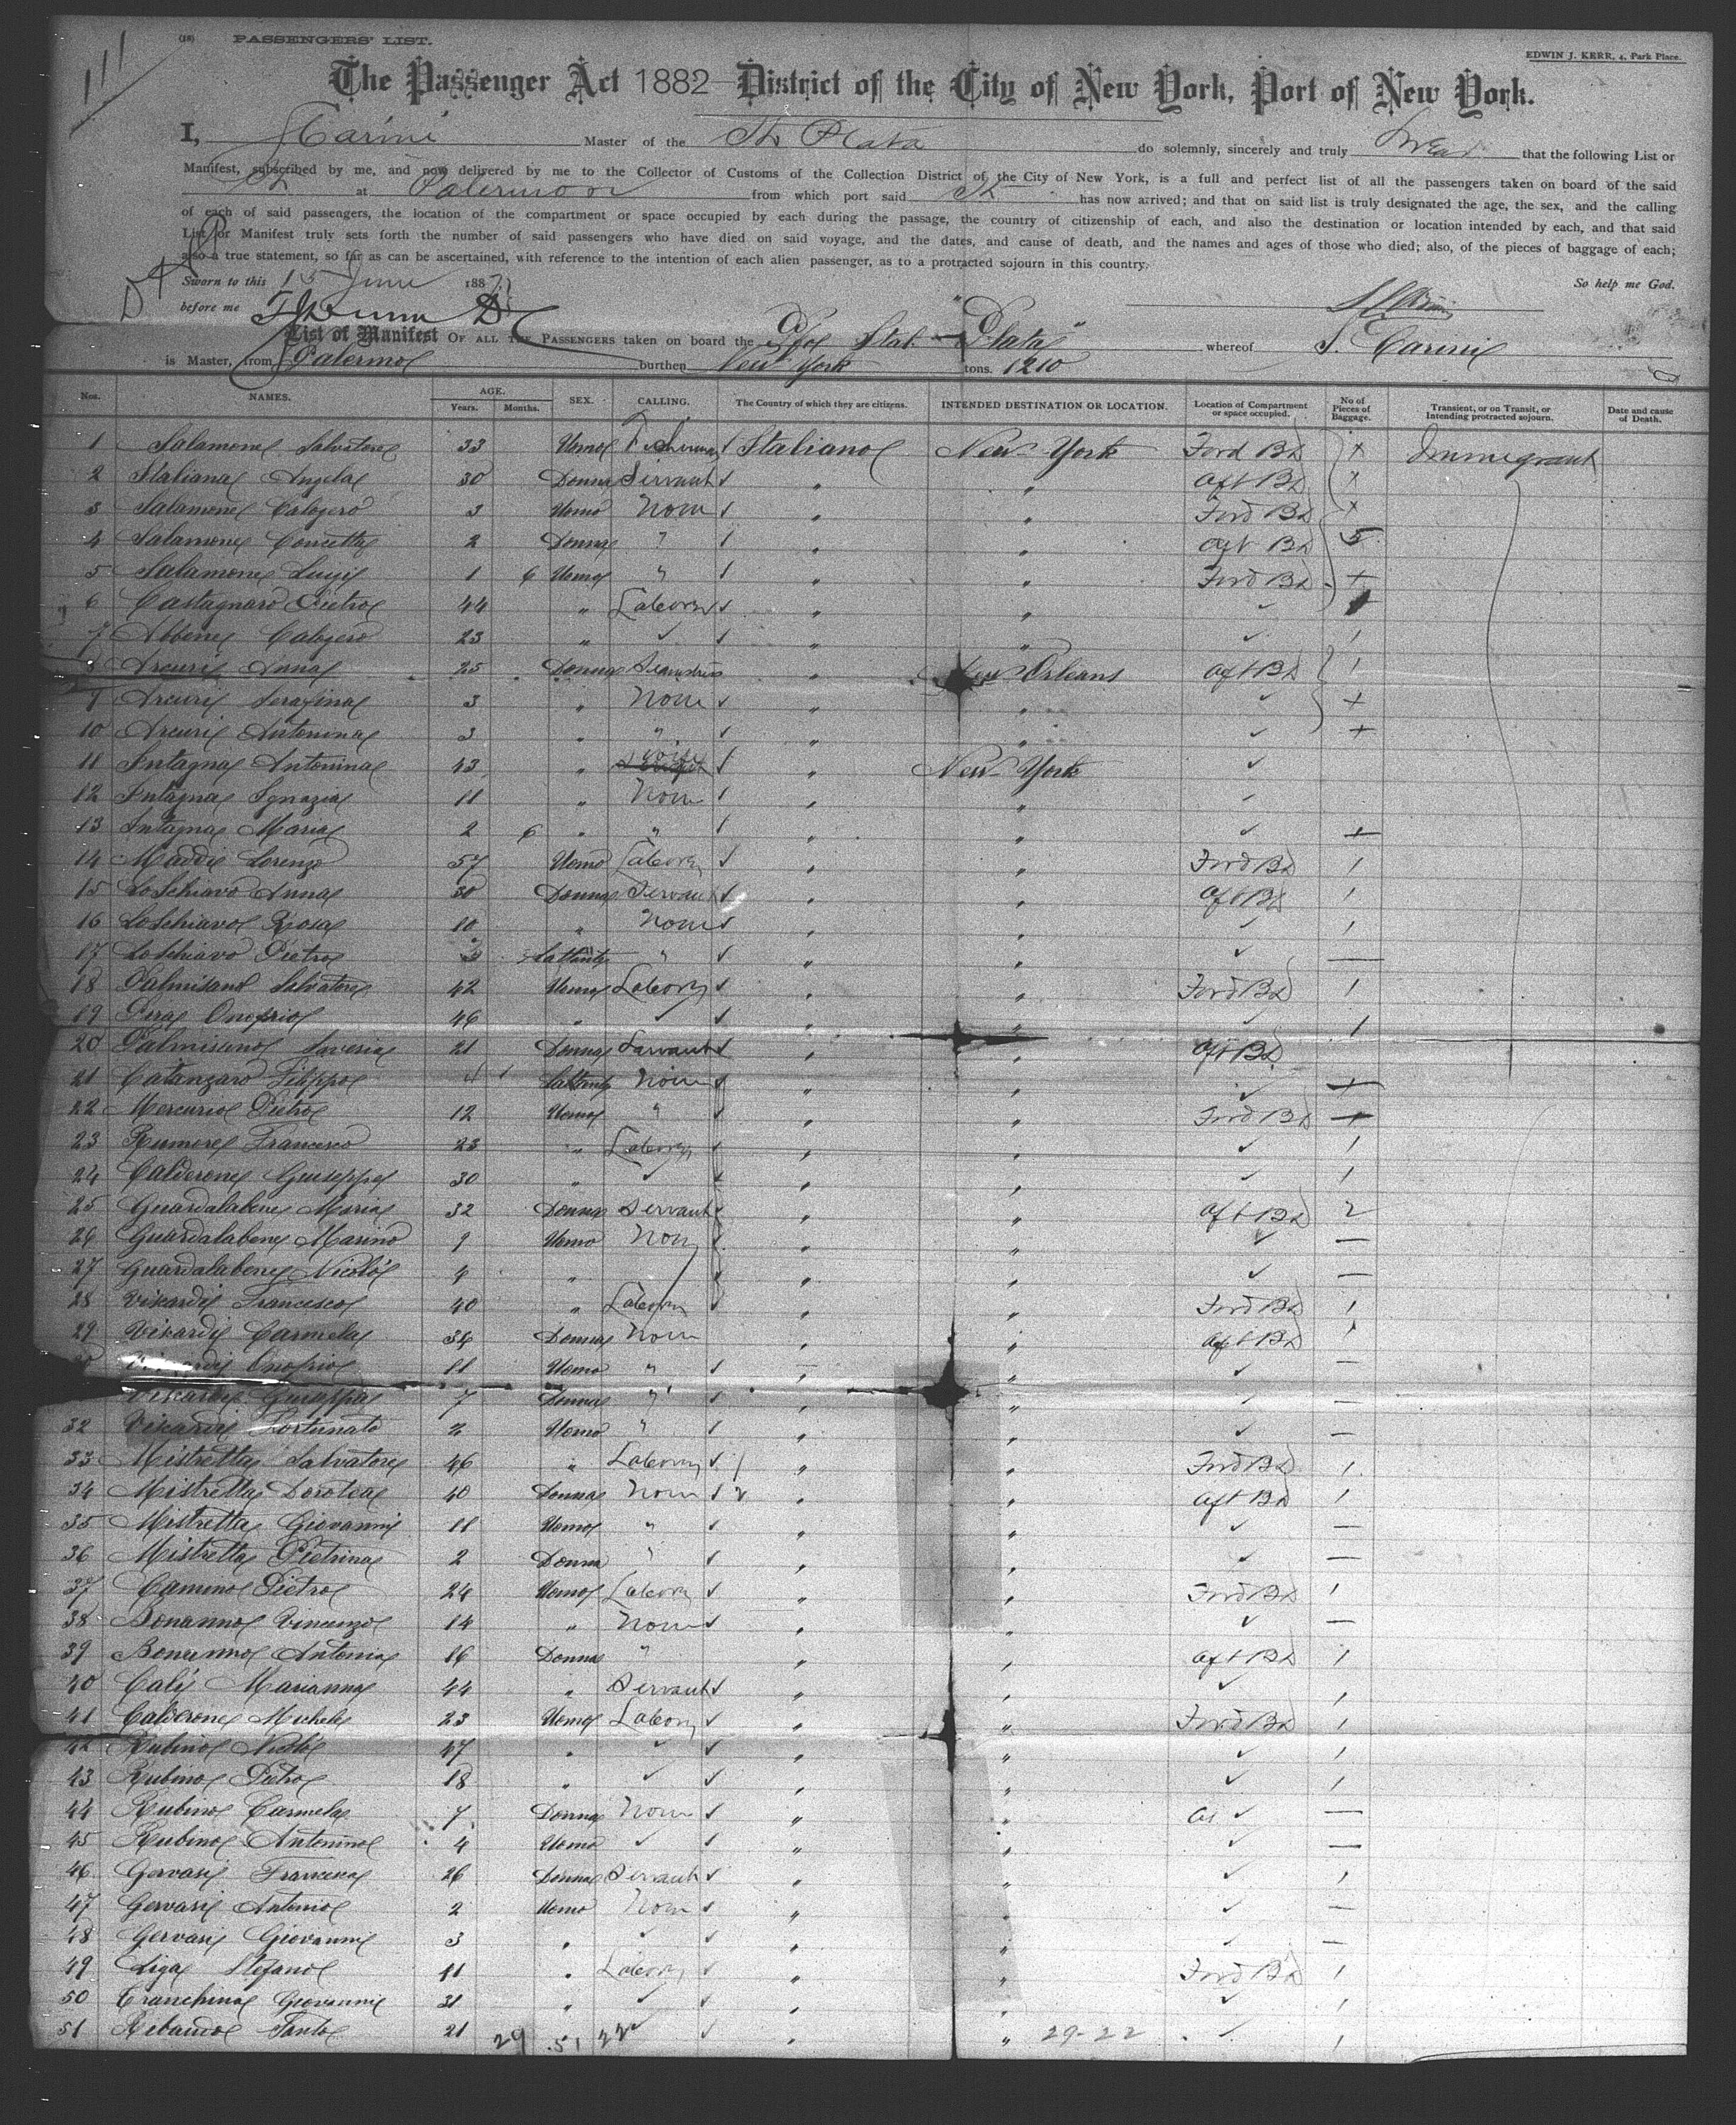 (18) PASSENGERS' LIST.
EDWIN J. KERR, 4, Park Place.
111
The Passenger Act 1882 District of the City of New York, Port of New York.
I, S Carini Master of the Str Plata do solemnly, sincerely and truly swear that the following List or
Manifest, subscribed by me, and now delivered by me to the Collector of Customs of the Collection District of the City of New York, is a full and perfect list of all the passengers taken on board of the said
Str at Palermo from which port said Str has now arrived; and that on said list is truly designated the age, the sex, and the calling
of each of said passengers, the location of the compartment or space occupied by each during the passage, the country of citizenship of each, and also the destination or location intended by each, and that said
List or Manifest truly sets forth the number of said passengers who have died on said voyage, and the dates, and cause of death, and the names and ages of those who died; also, of the pieces of baggage of each;
also a true statement, so far as can be ascertained, with reference to the intention of each alien passenger, as to a protracted sojourn in this country.
Sworn to this 15 June 188 So help me God.
before me
List of Manifest OF ALL THE PASSENGERS taken on board the Pfo Ital. "Plata" whereof S. Carini
is Master, from Palermo burthen New York tons. 1210
Nos. NAMES. AGE. Years. Months. SEX. CALLING. The Country of which they are citizens. INTENDED DESTINATION OR LOCATION. Location of Compartment or space occupied. No of Pieces of Baggage. Transient, or on Transit, or Intending protracted sojourn. Date and cause of Death.
1 Salamone Salvatore 33 Uomo Fisherman Italiano New York Ford Bd Immigrant
2 Italiana Angela 30 Donna Servant " " Aft Bd
3 Salamone Calogero 3 Uomo None " " Ford Bd
4 Salamone Concetta 2 Donna " " " Aft Bd 5
5 Salamone Luigi 1 6 Uomo " " " Ford Bd
6 Castagnaro Pietro 44 " Labory " "
7 Abbene Calogero 23 " " " 1
8 Arcuri Anna 25 Donna Seamstress " New Orleans Aft Bd 1
9 Arcuri Serafina 3 " None " " +
10 Arcuri Antonina 3 " " " " +
11 Intagna Antonina 43 " wife " New York
12 Intagna Ignazia 11 " None " "
13 Intagna Maria 2 6 " " " " +
14 Maddi Lorenzo 57 Uomo Labory " " Ford Bd 1
15 LoSchiavo Anna 30 Donna Servant " " Aft Bd 1
16 LoSchiavo Rosa 10 " None " " 1
17 LoSchiavo Pietro Lattante " " " —
18 Palmisano Salvatore 42 Uomo Labory " " Ford Bd 1
19 Pera Onofrio 46 " " " 1
20 Palmisano Saveria 21 Donna Servant " " Aft Bd
21 Catanzaro Filippo Lattante None " " +
22 Mercurio Pietro 12 Uomo " " " Ford Bd +
23 Rumore Francesco 23 " Labory " " 1
24 Calderone Giuseppe 30 " " " 1
25 Guardalabene Maria 32 Donna Servant " " Aft Bd 2
26 Guardalabene Marino 9 Uomo None " " —
27 Guardalabene Nicolò 4 " " " —
28 Viscardi Francesco 40 " Labory " " Ford Bd 1
29 Viscardi Carmela 34 Donna None " " Aft Bd 1
Onofrio 11 Uomo " " " —
Viscardi Giuseppa 7 Donna " " " —
32 Viscardi Fortunato 2 Uomo " " " —
33 Mistretta Salvatore 46 " Labory " " Ford Bd 1
34 Mistretta Dorotea 40 Donna None " " Aft Bd 1
35 Mistretta Giovanni 11 Uomo " " " —
36 Mistretta Pietrina 2 Donna " " " —
37 Camino Pietro 24 Uomo Labory " " Ford Bd 1
38 Bonanno Vincenzo 14 " None " " —
39 Bonanno Antonia 16 Donna " " " Aft Bd 1
40 Calì Marianna 44 " Servant " " 1
41 Calderone Michele 23 Uomo Labory " " Ford Bd 1
42 Rubino Nicolò 47 " " " 1
43 Rubino Pietro 18 " " " 1
44 Rubino Carmela 7 Donna None " " —
45 Rubino Antonino 4 Uomo " " —
46 Gervasi Francesca 26 Donna Servant " " 1
47 Gervasi Antonio 2 Uomo None " " —
48 Gervasi Giovanni 3 " " " —
49 Liga Stefano 41 " Labory " " Ford Bd 1
50 Tranchina Giovanni 31 " " " 1
51 Ribaudo Santo 21 " " 1
29 51 22 29-22